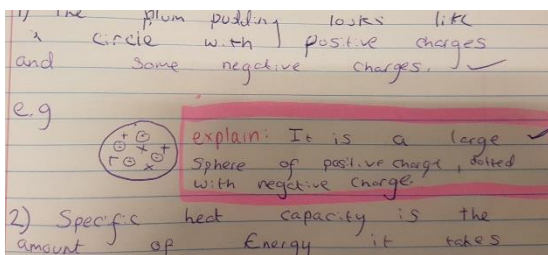 1) The plum pudding looks like
a circle with positive charges
and some negative charges.
e.g
explain: It is a large
sphere of positive charge, dotted
with negative charge.
2) Specific heat capacity is the
amount of Energy it takes